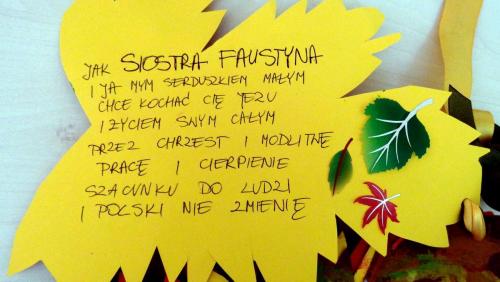 JAK SIOSTRA FAUSTYNA
I JA MYM SERDUSZKIEM MAŁYM
CHCE KOCHAĆ CIĘ JEZU
I ŻYCIEM SWYM CAŁYM
PRZEZ CHRZEST I MODLITWĘ
PRACĘ I CIERPIENIE
SZACUNKU DO LUDZI
I POLSKI NIE ZMIENIĘ